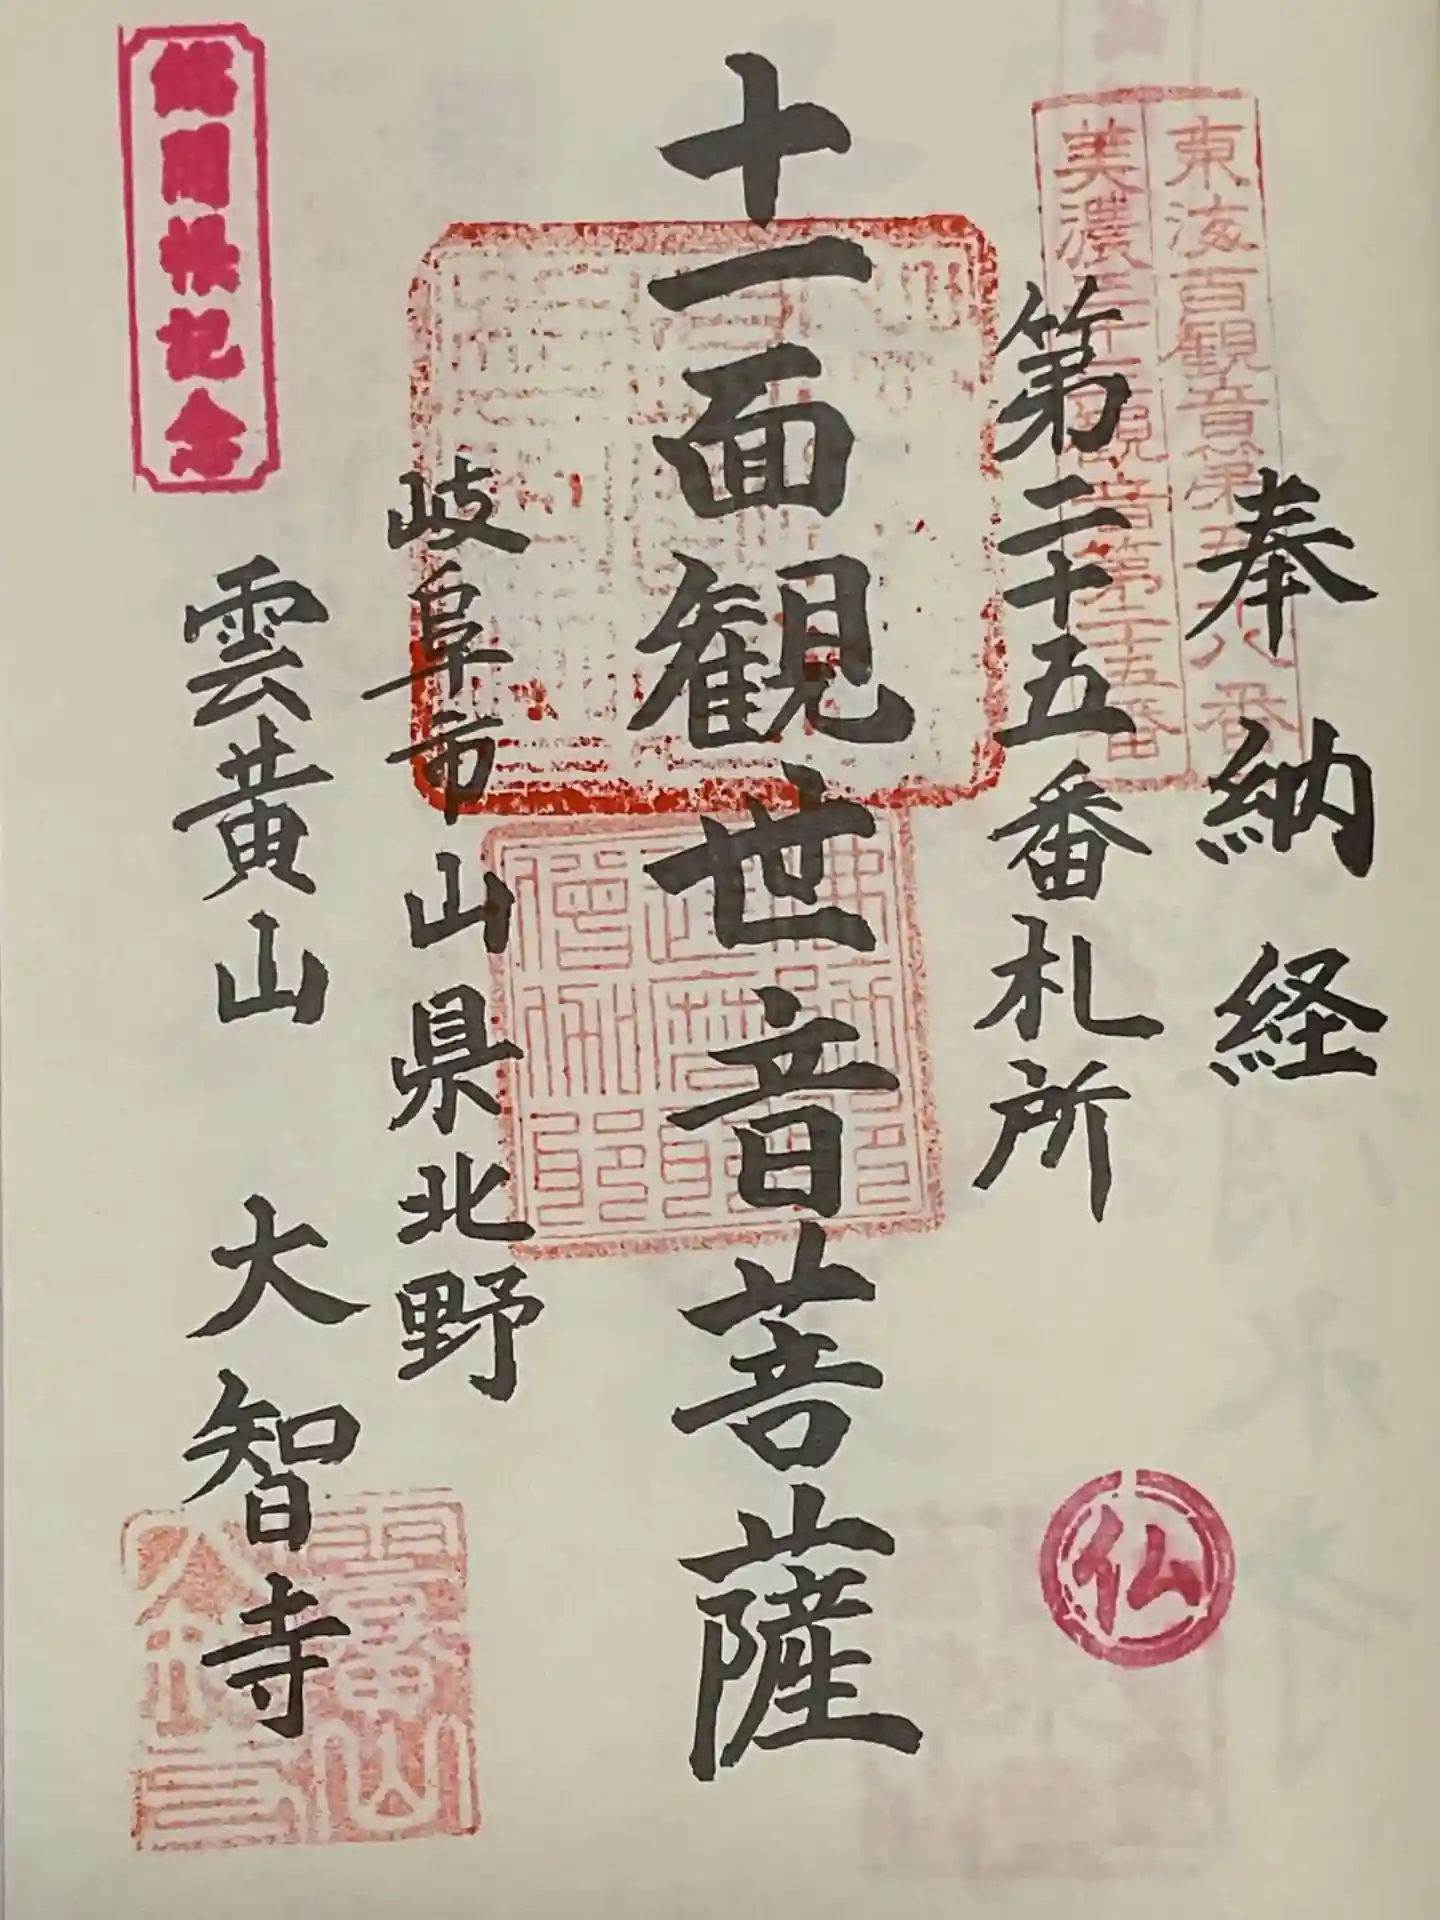 東海百観音第五十八番
美濃三十三観音第二十五番
奉納経
第二十五番札所
十一面観世音菩薩
岐阜市山県北野
雲黄山 大智寺
総開帳記念
仏
雲黄山
大智寺